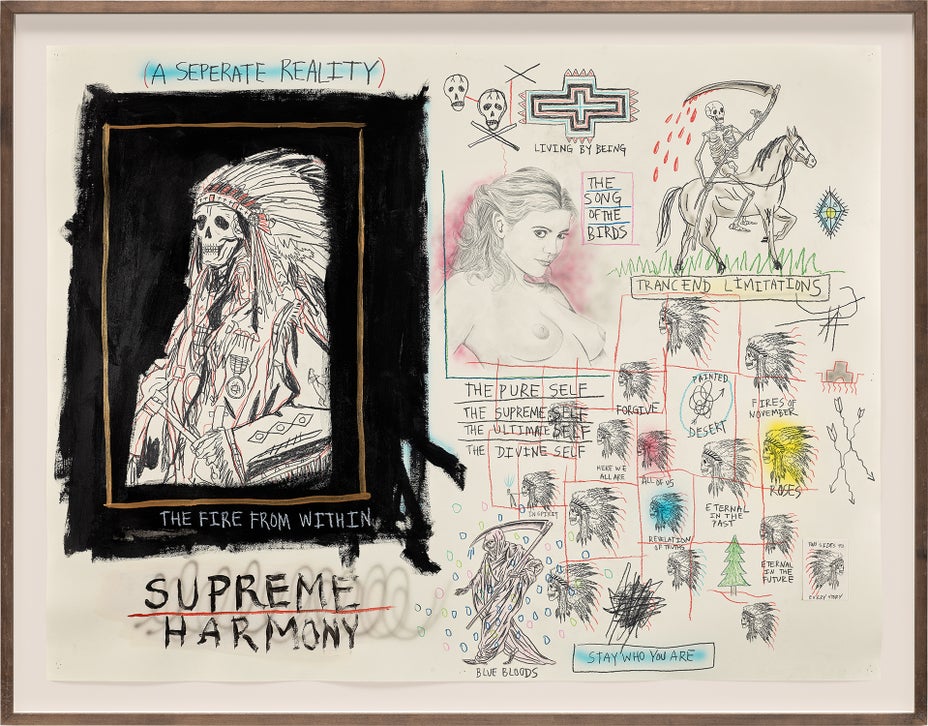 (A SEPERATE REALITY)
THE FIRE FROM WITHIN
SUPREME
HARMONY
LIVING BY BEING
THE
SONG
OF THE
BIRDS
TRANCEND LIMITATIONS
THE PURE SELF
THE SUPREME SELF
THE ULTIMATE SELF
THE DIVINE SELF
FORGIVE
PAINTED
DESERT
FIRES OF
NOVEMBER
HERE WE
ALL ARE
ALL OF US
ROSES
IN SPIRIT
ETERNAL
IN THE
PAST
REVELATION
OF TRUTHS
ETERNAL
IN THE
FUTURE
TWO SIDES TO
EVERY STORY
BLUE BLOODS
STAY WHO YOU ARE